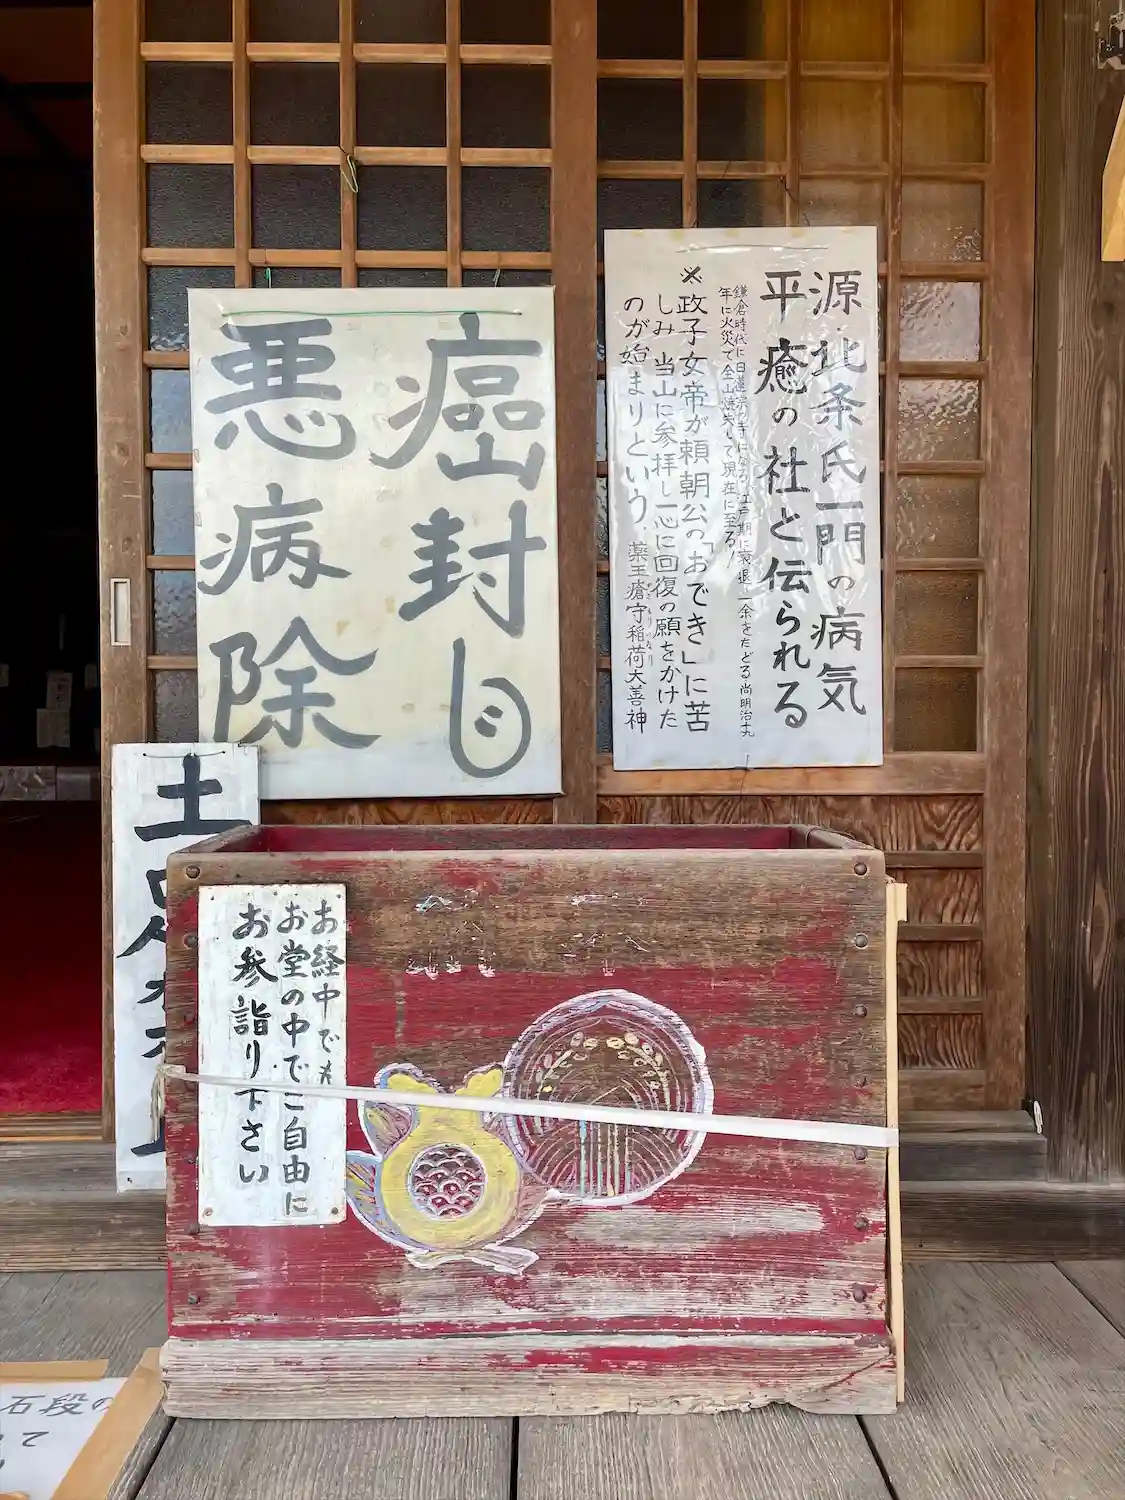 癌封じ
悪病除
源・北条氏一門の病気
平癒の社と伝られる
鎌倉時代に日蓮宗の寺になる。江戸期に衰退、余をたどる尚明治十九
年に火災で全山焼失して現在に至る/
※政子女帝が頼朝公の「おでき」に苦
しみ 当山に参拝し一心に回復の願をかけた
のが始まりという。薬王瘡守稲荷大善神
お経中でも
お堂の中でご自由に
お参詣り下さい
土足
石段の
て